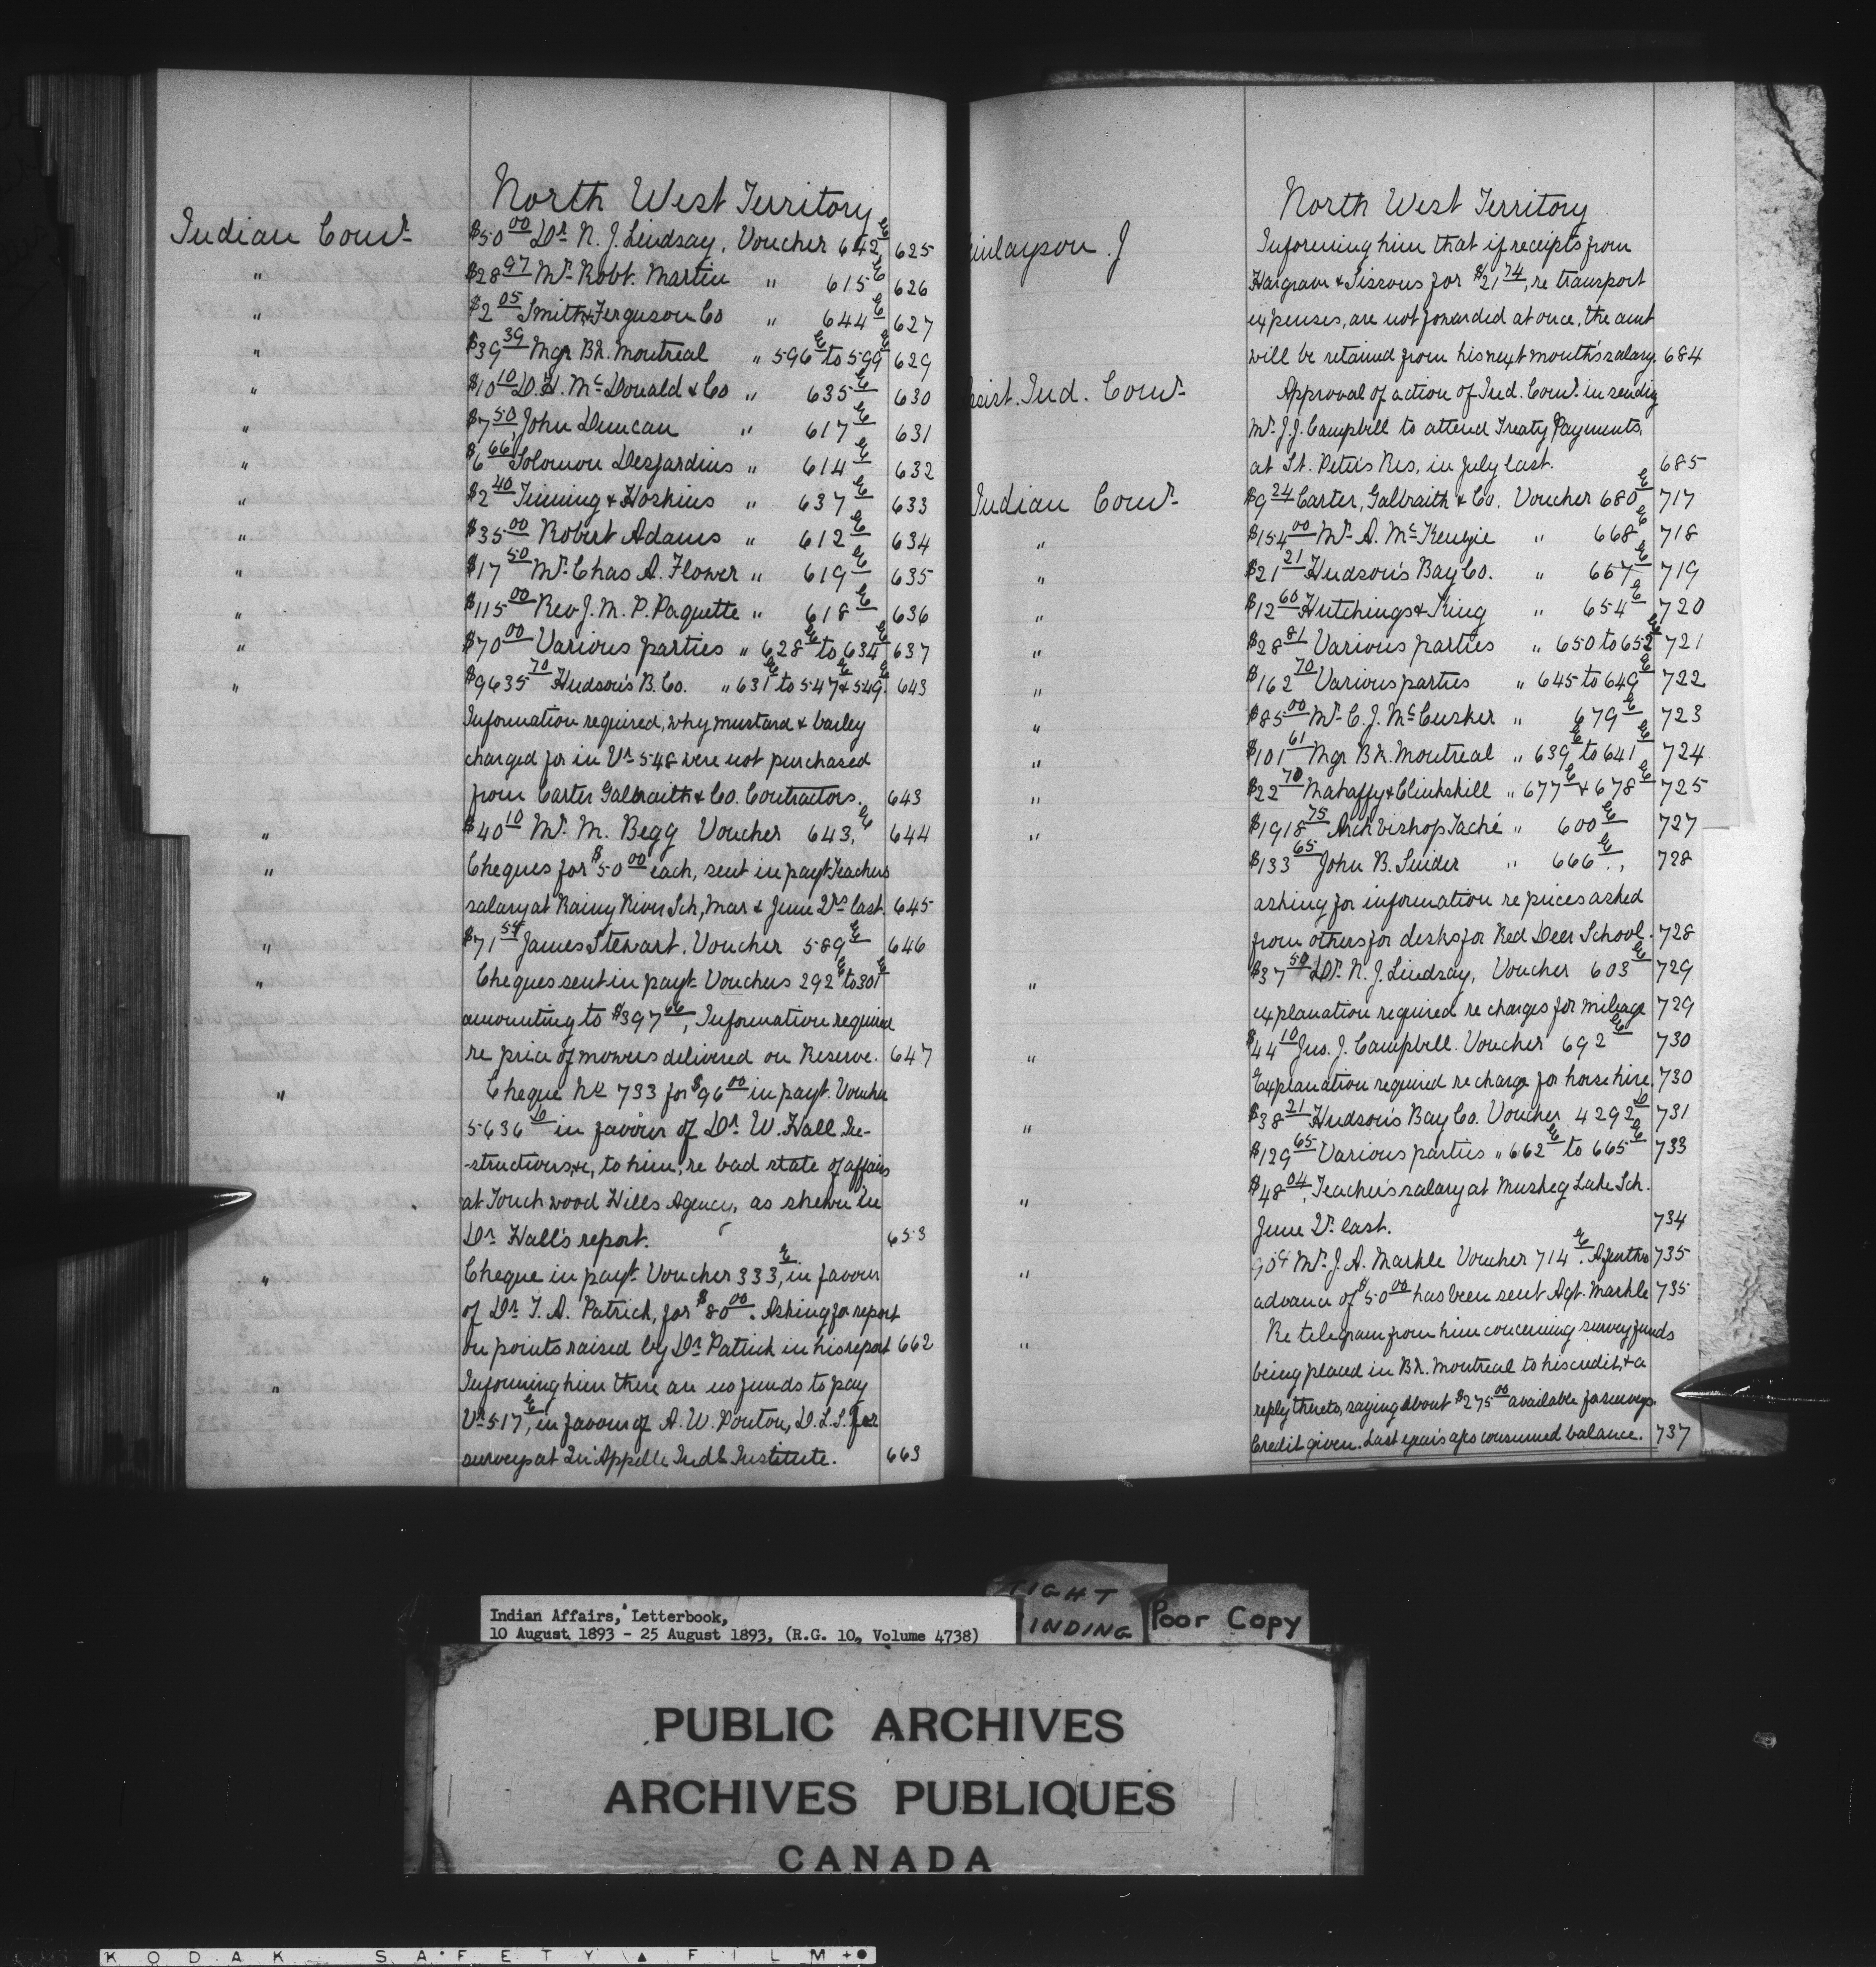 North West Territory
Indian Comr. $50.00 Dr. N. J. Lindsay, Voucher 642 E 625
" $28.97 Mr. Robt. Martin " 615 E 626
" $2.05 Smith & Ferguson Co " 644 E 627
" $39.39 Mgr Bk. Montreal " 596 E to 599 E 629
" $10.10 D. H. McDonald & Co " 635 E 630
" $7.50 John Duncan " 617 E 631
" $6.66 Solomon Desjardins " 614 E 632
" $2.40 Tinning & Hoskins " 637 E 633
" $35.00 Robert Adams " 612 E 634
" $17.50 Mr. Chas A. Flower " 619 E 635
" $115.00 Rev J. M. P. Paquette " 618 E 636
" $70.00 Various parties " 628 E to 634 E 637
" $9635.70 Hudson's B. Co. " 631 E to 547 E & 549 E 643
Information required, why mustard & barley
charged for in Vr. 548 were not purchased
from Carter Galbraith & Co. Contractors. 643
" $40.10 Mr. M. Begg Voucher 643, E 644
" Cheques for $50.00 each, sent in payt Teachers
salary at Rainy River Sch, Mar & June Qrs last. 645
" $71.54 James Stewart. Voucher 589 E 646
" Cheques sent in payt. Vouchers 292 E to 301 E
amounting to $397.66, Information required
re price of mowers delivered on Reserve. 647
" Cheque No 733 for $96.00 in payt. Voucher
5636 D in favour of Dr. W. Hall In-
-structions, &c, to him, re bad state of affairs
at Touchwood Hills Agency, as shewn in
Dr. Hall's report. 653
" Cheque in payt. Voucher 333, E in favour
of Dr. T. A. Patrick, for $80.00. Asking for report
on points raised by Dr. Patrick in his report 662
" Informing him there are no funds to pay
Vr. 517, E in favour of A. W. Ponton, D.L.S. for
surveys at Qu'Appelle Indl. Institute. 663
North West Territory
inlayson. J Informing him that if receipts from
Hargrave & Sissons for $21.74, re transport
expenses, are not forwarded at once, the amt
will be retained from his next month's salary. 684
ssist. Ind. Comr. Approval of action of Ind. Comr. in sending
Mr. J. J. Campbell to attend Treaty Payments,
at St. Peter's Res, in July last. 685
Indian Comr. $9.24 Carter, Galbraith & Co. Voucher 680 E 717
" $154.00 Mr. A. McKenzie " 668 E 718
" $21.21 Hudson's Bay Co. " 657 E 719
" $12.60 Hutchings & King " 654 E 720
" $28.81 Various parties " 650 to 652 E 721
" $162.70 Various parties " 645 to 649 E 722
" $85.00 Mr. C. J. McCusker " 679 E 723
" $101.61 Mgr Bk. Montreal " 639 E to 641 E 724
" $22.70 Mahaffy & Clinkskill " 677 E & 678 E 725
" $1918.75 Archbishop Taché " 600 E 727
$133.65 John B. Snider " 666 E, 728
asking for information re prices asked
from others for desks for Red Deer School. 728
" $37.50 Dr. N. J. Lindsay, Voucher 603 E 729
explanation required re charges for mileage 729
" $44.10 Jns. J. Campbell. Voucher 692 E 730
Explanation required re charge for horse hire. 730
" $38.21 Hudson's Bay Co. Voucher 4292 D 731
$129.65 Various parties " 662 E to 665 E 733
" $48.04, Teacher's salary at Muskeg Lake Sch.
June Qr. last. 734
" 90c Mr. J. A. Markle Voucher 714 E. A further 735
advance of $50.00 has been sent Agt. Markle 735
" Re telegram from him concerning survey funds
being placed in Bk. Montreal to his credit, & a
reply thereto, saying about $275.00 available for surveys.
Credit given. Last year's a/cs consumed balance. 737
Indian Affairs, Letterbook,
10 August 1893 - 25 August 1893, (R.G. 10, Volume 4738)
IGHT
INDING
Poor Copy
PUBLIC ARCHIVES
ARCHIVES PUBLIQUES
CANADA
KODAK SAFETY FILM